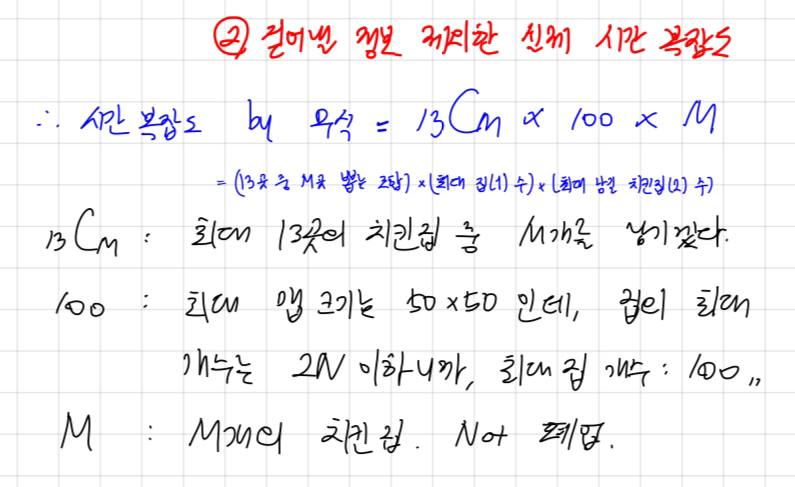 ② 걷어낼 정보 제외한 실제 시간 복잡도
∴ 시간 복잡도 by 무식 = 13Cm × 100 × M
= (13곳 중 M곳 뽑는 조합) × (최대 집(1) 수) × (최대 남긴 치킨집(2) 수)
13CM : 최대 13곳의 치킨집 중 M개를 남기겠다.
100 : 최대 맵 크기는 50×50 인데, 집의 최대
개수는 2N 이하니까, 최대 집 개수 : 100,,
M : M개의 치킨집. Not 폐업.